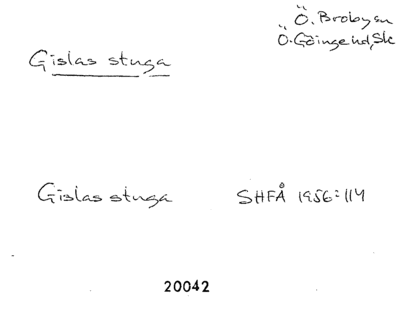 Ö. Broby sn
Ö. Göinge hd, Sk
Gislas stuga
Gislas stuga SHFÅ 1956:114
20042